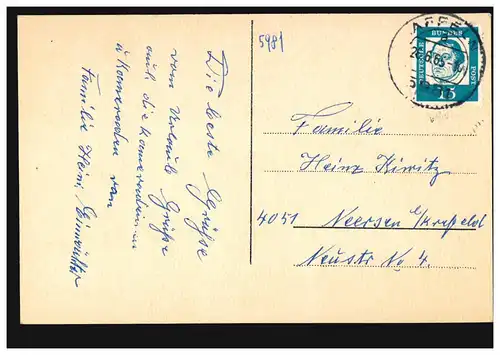 5981
Die beste Grüße
vom Urlaub Grüße
auch die Kameradinnen
u Kameraden von
Familie Hein,
AFFELN
24.6.63
BUNDESPOST
DEUTSCHE
15
Familie
Heinz Kiwitz
4051 Neersen b/Krefeld
Neustr No 4.